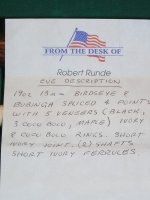 FROM THE DESK OF
Robert Runde
CUE DESCRIPTION
19oz 13mm BIRDSEYE &
BUBINGA SPLICED 4 POINTS
WITH 5 VENEERS (BLACK,
3 COCO BOLO, MAPLE) IVORY
& COCO BOLO RINGS. SHORT
IVORY JOINT. (2) SHAFTS
SHORT IVORY FERRULES